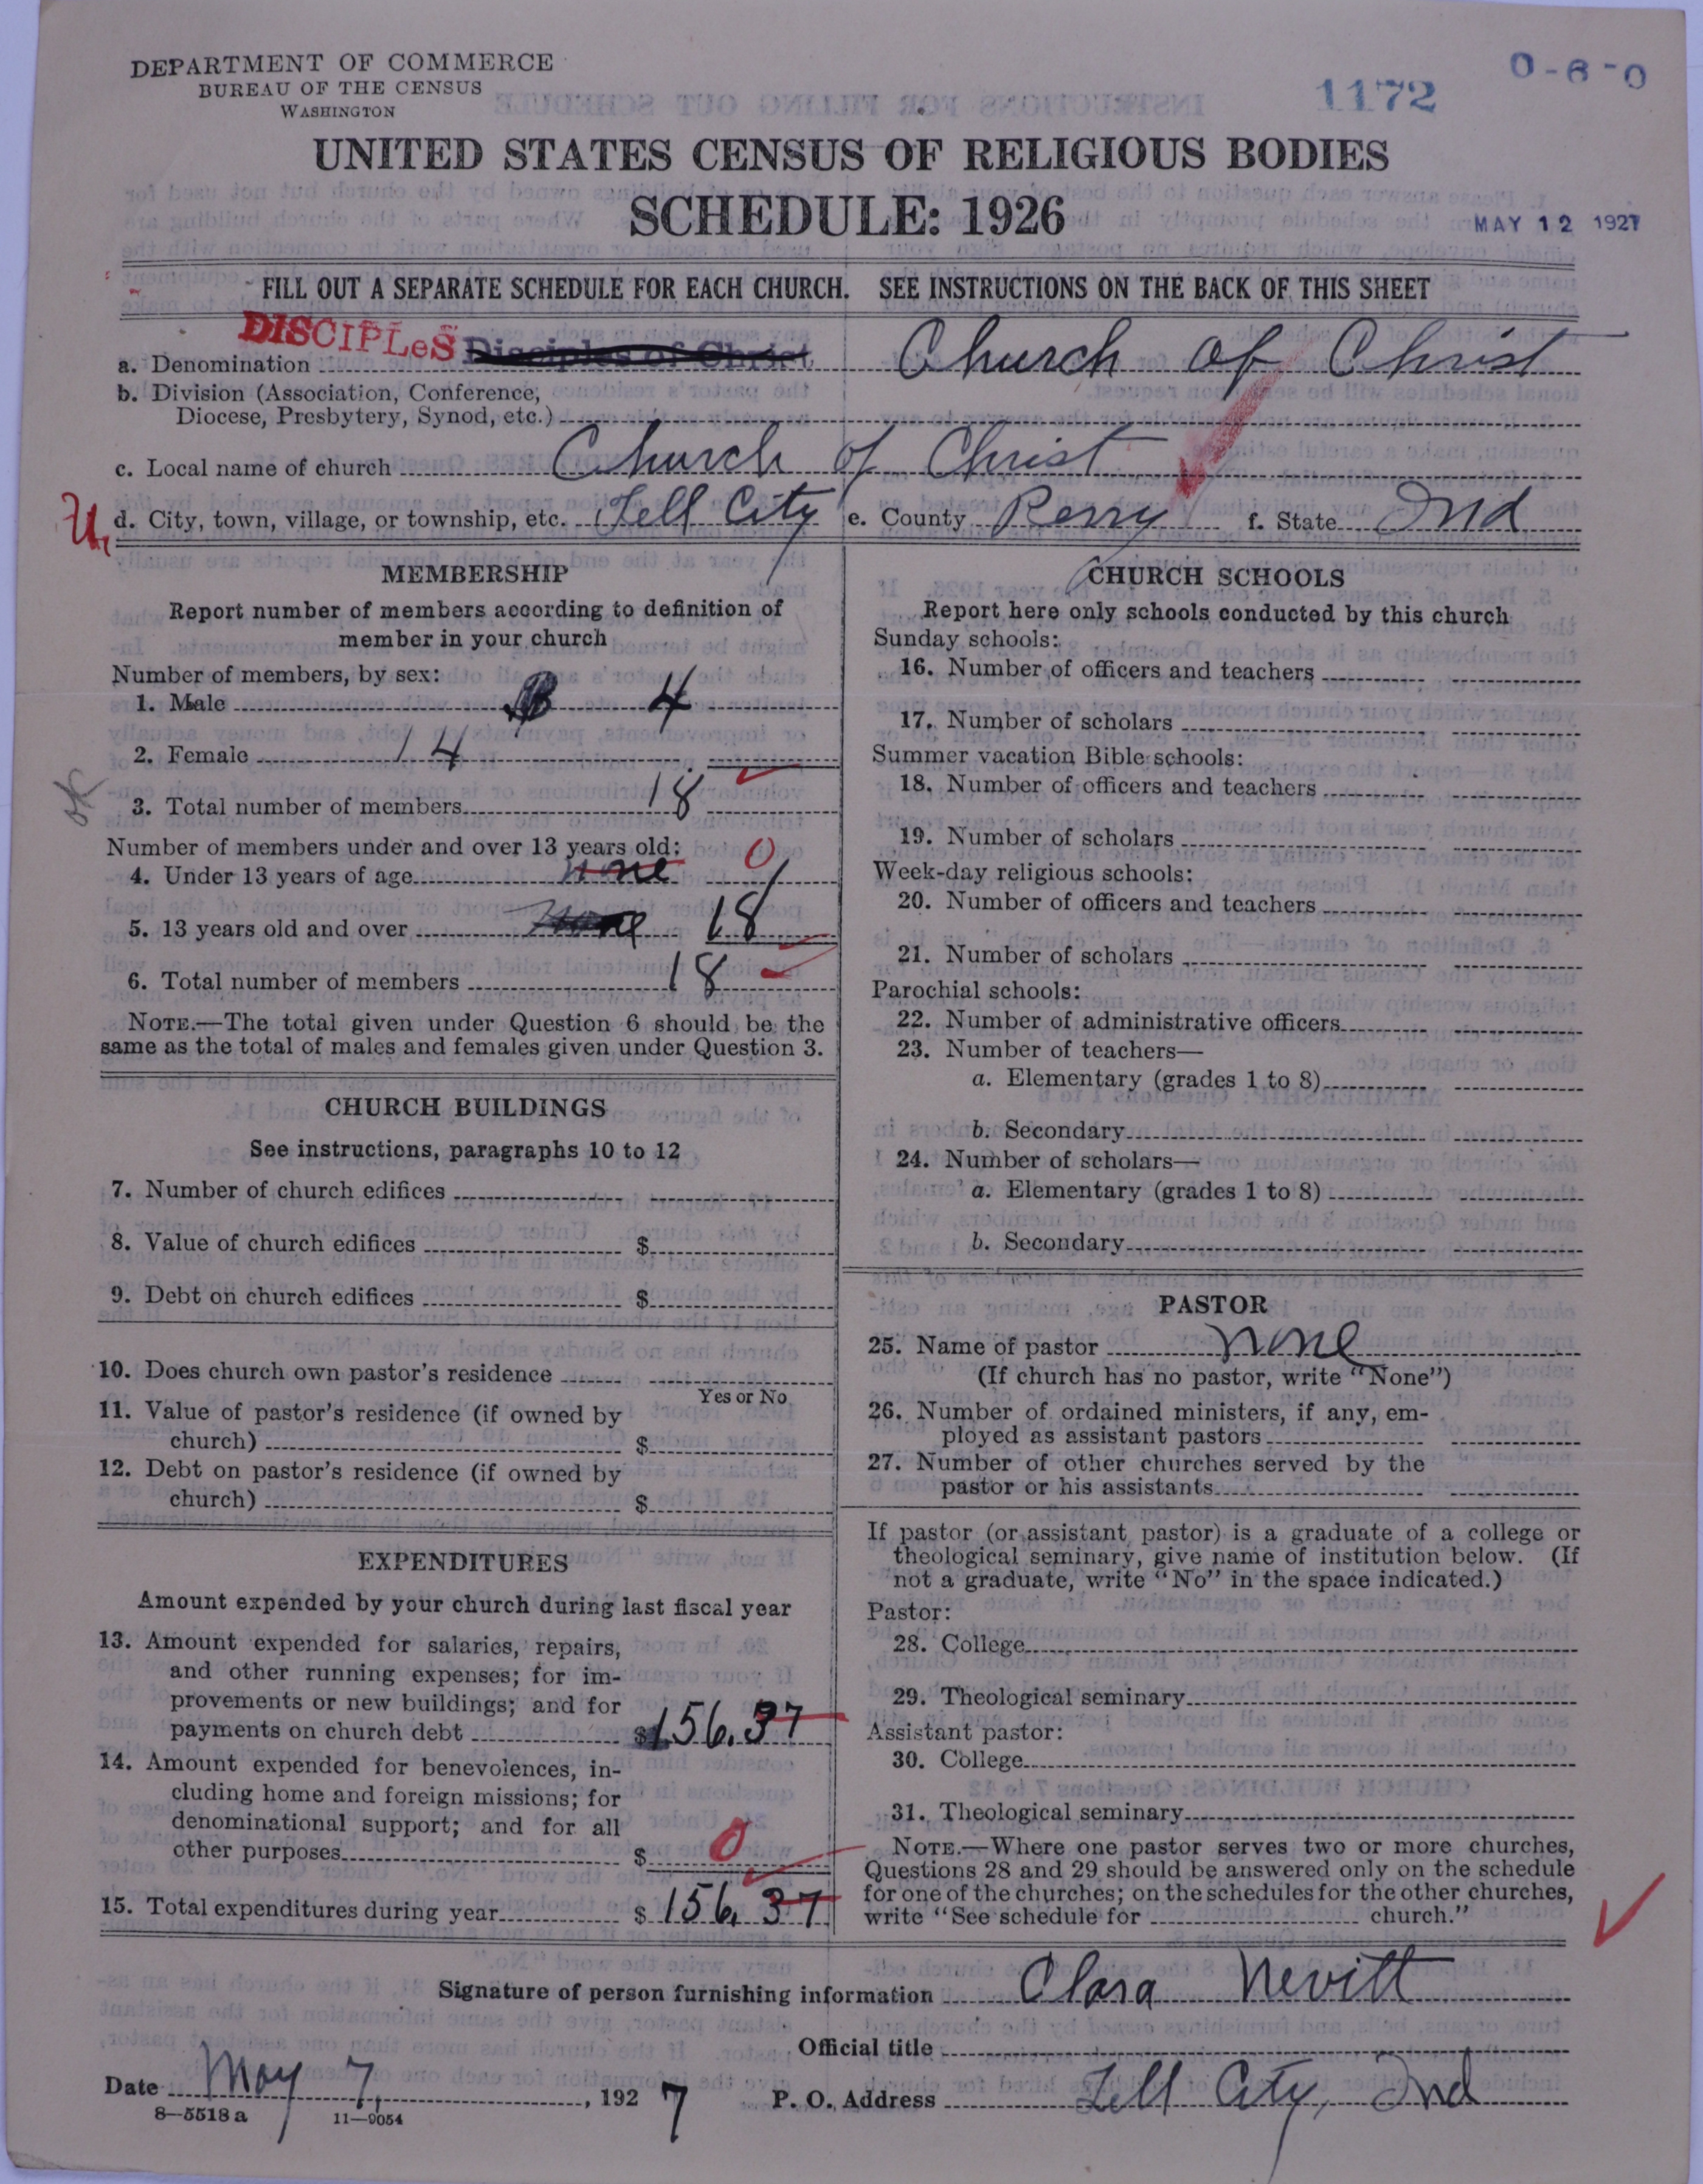 DEPARTMENT OF COMMERCE
BUREAU OF THE CENSUS
WASHINGTON
1172
0-6-0
UNITED STATES CENSUS OF RELIGIOUS BODIES
SCHEDULE: 1926
MAY 12 1927
FILL OUT A SEPARATE SCHEDULE FOR EACH CHURCH. SEE INSTRUCTIONS ON THE BACK OF THIS SHEET
DISCIPLeS
a. Denomination Disciples of Christ Church of Christ
b. Division (Association, Conference,
Diocese, Presbytery, Synod, etc.)
c. Local name of church Church of Christ
U, d. City, town, village, or township, etc. Tell City e. County Perry f. State Ind
MEMBERSHIP
Report number of members according to definition of
member in your church
Number of members, by sex:
1. Male 4
2. Female 14
OK
3. Total number of members 18
Number of members under and over 13 years old:
4. Under 13 years of age none 0
5. 13 years old and over None 18
6. Total number of members 18
NOTE.—The total given under Question 6 should be the
same as the total of males and females given under Question 3.
CHURCH BUILDINGS
See instructions, paragraphs 10 to 12
7. Number of church edifices
8. Value of church edifices $
9. Debt on church edifices $
10. Does church own pastor's residence
Yes or No
11. Value of pastor's residence (if owned by
church) $
12. Debt on pastor's residence (if owned by
church) $
EXPENDITURES
Amount expended by your church during last fiscal year
13. Amount expended for salaries, repairs,
and other running expenses; for im-
provements or new buildings; and for
payments on church debt $156.37
14. Amount expended for benevolences, in-
cluding home and foreign missions; for
denominational support; and for all
other purposes $ 0
15. Total expenditures during year $ 156.37
CHURCH SCHOOLS
Report here only schools conducted by this church
Sunday schools:
16. Number of officers and teachers
17. Number of scholars
Summer vacation Bible schools:
18. Number of officers and teachers
19. Number of scholars
Week-day religious schools:
20. Number of officers and teachers
21. Number of scholars
Parochial schools:
22. Number of administrative officers
23. Number of teachers—
a. Elementary (grades 1 to 8)
b. Secondary
24. Number of scholars—
a. Elementary (grades 1 to 8)
b. Secondary
PASTOR
25. Name of pastor none
(If church has no pastor, write "None")
26. Number of ordained ministers, if any, em-
ployed as assistant pastors
27. Number of other churches served by the
pastor or his assistants
If pastor (or assistant pastor) is a graduate of a college or
theological seminary, give name of institution below. (If
not a graduate, write "No" in the space indicated.)
Pastor:
28. College
29. Theological seminary
Assistant pastor:
30. College
31. Theological seminary
NOTE.—Where one pastor serves two or more churches,
Questions 28 and 29 should be answered only on the schedule
for one of the churches; on the schedules for the other churches,
write "See schedule for church."
Signature of person furnishing information Clara Nevitt
Official title
Date May 7, 1927 P. O. Address Tell City, Ind
8—5518 a 11—9054